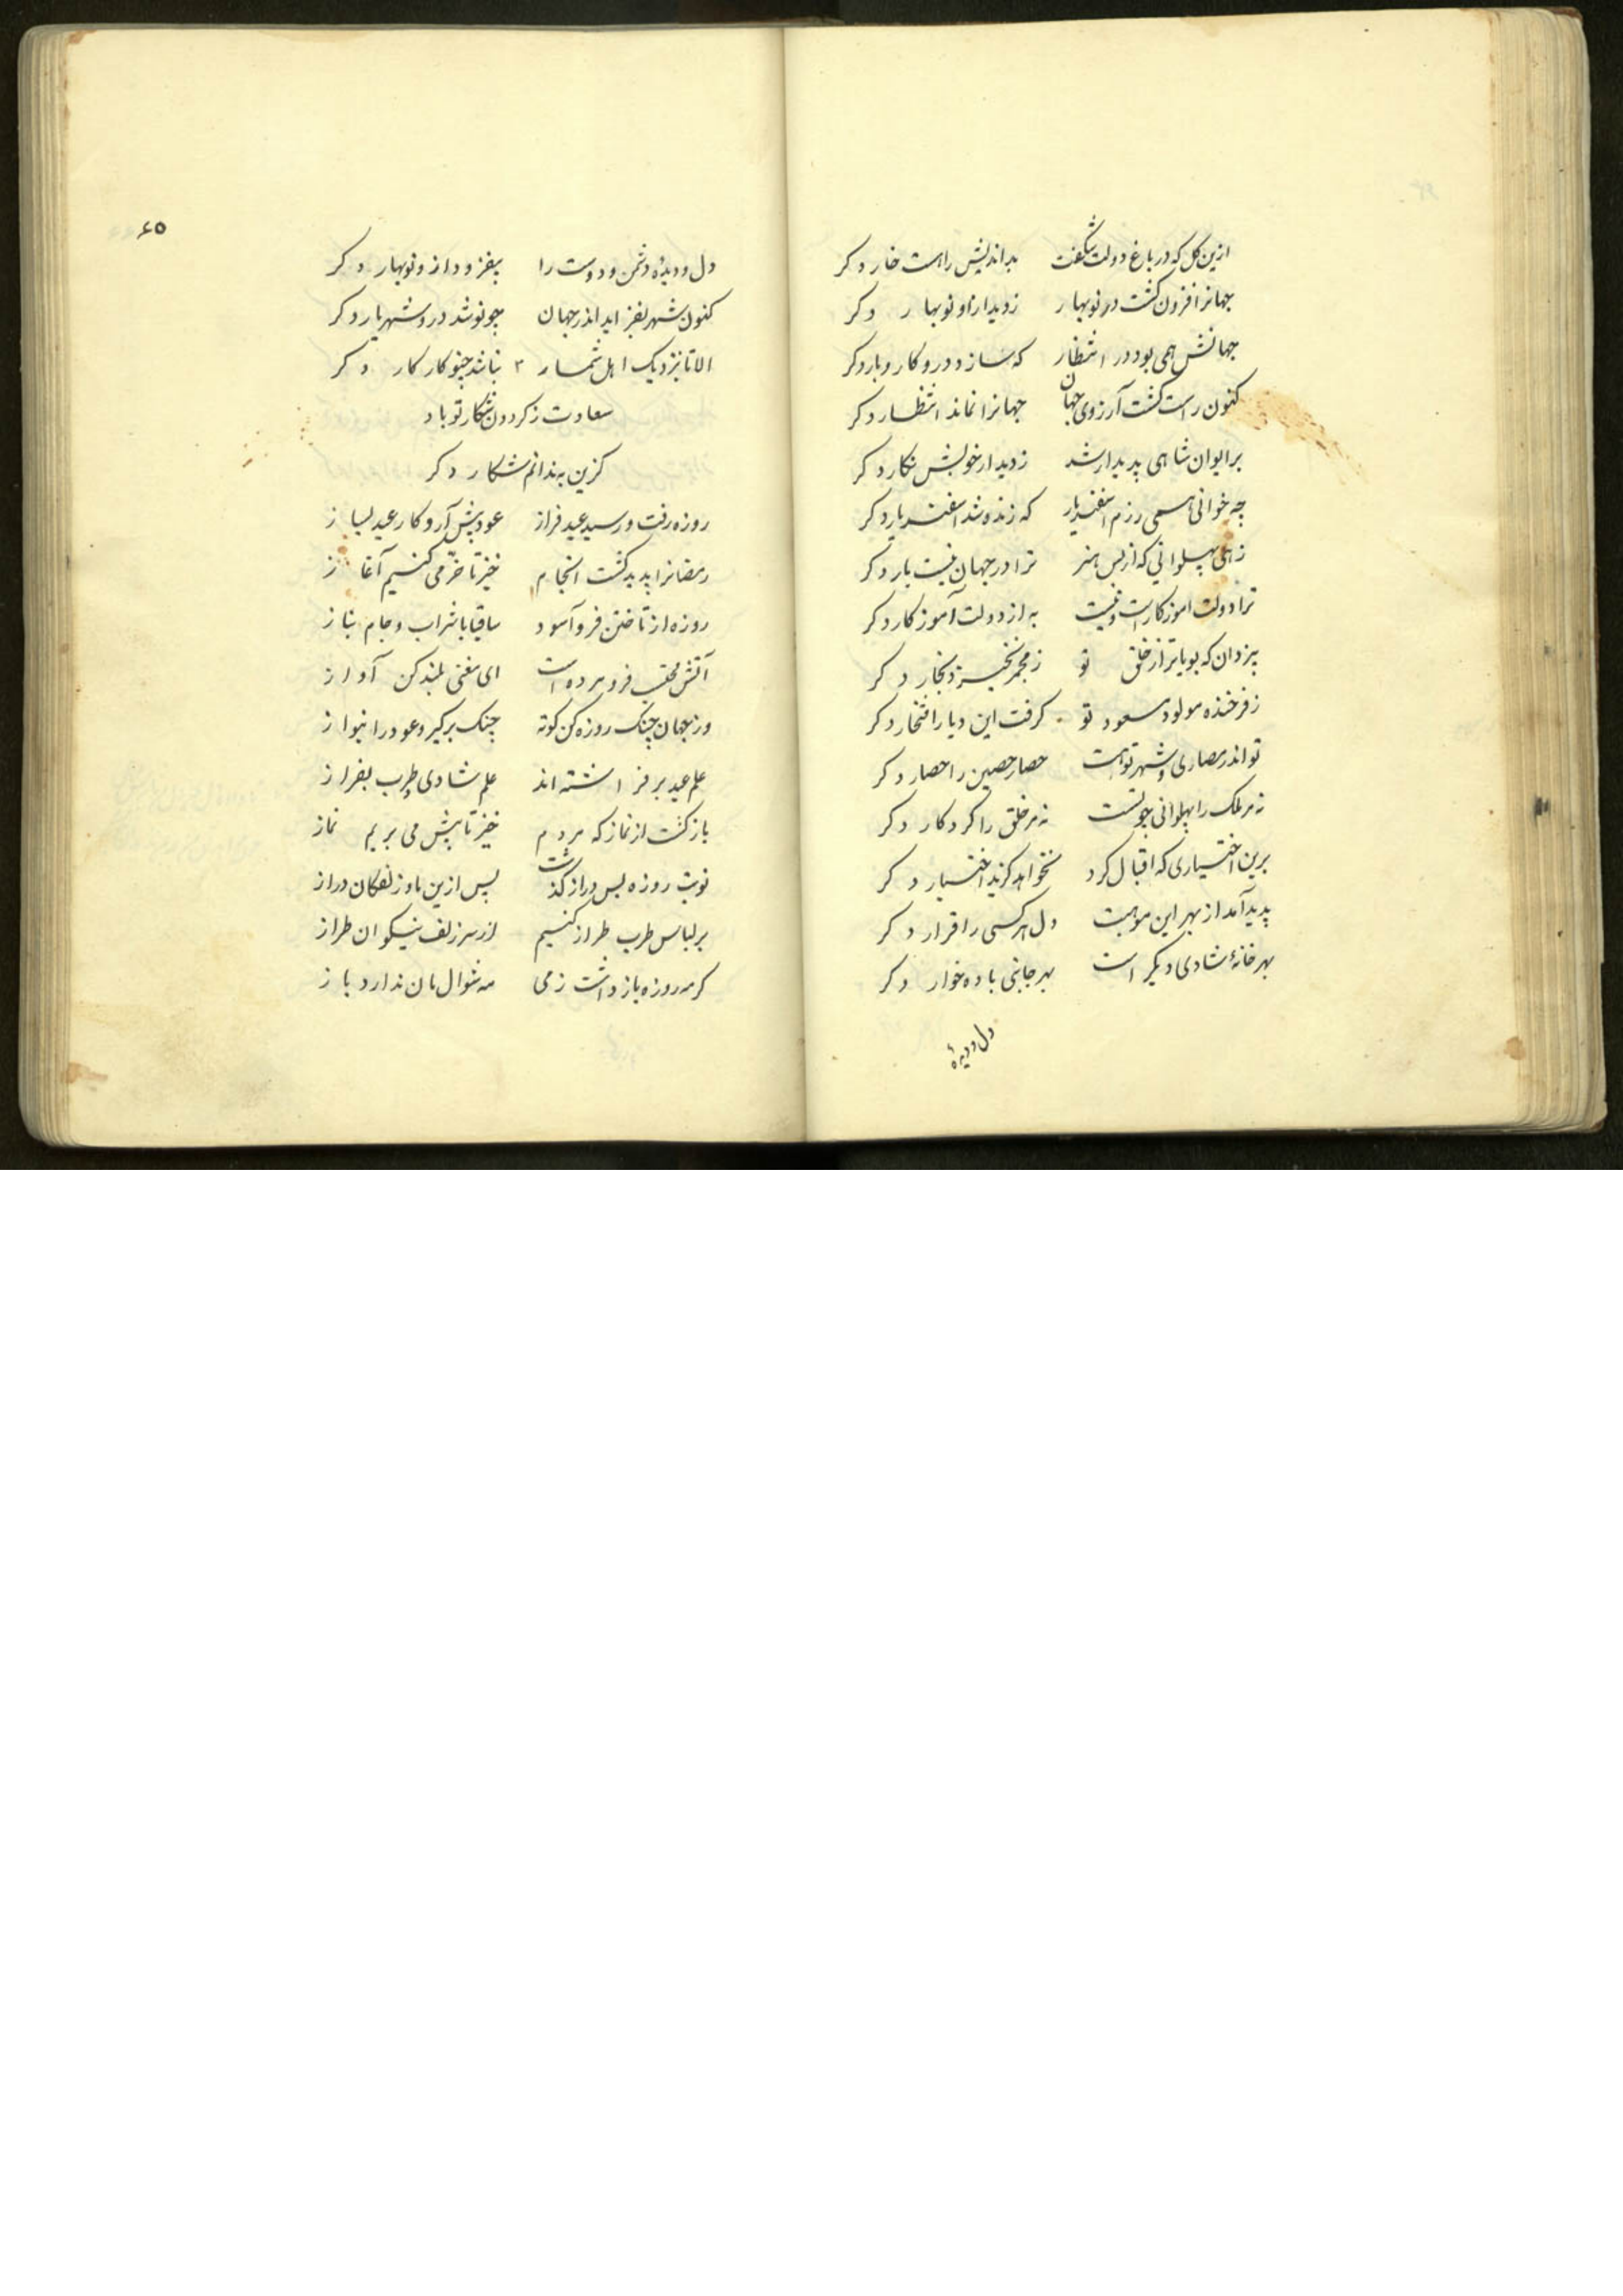 ازین کل که در باغ دولت شکفت بداندیش راهست خار دکر
جهانرا فزون کشت در نوبهار ز دیدار او نوبهار دکر
جهانش همی بود در انتظار که سازد درو کار و بار دکر
کنون راست کشت آرزوی جهان جهانرا نماند انتظار دکر
بر ایوان شاهی پدیدار شد ز دیدار خوبش نکار دکر
چه خوانی همی رزم اسفندیار که زنده شد اسفندیار دکر
زهی پهلوانی که از بس هنر ترا در جهان نیست یار دکر
ترا دولت اموزکارست و نیست به از دولت آموزکار دکر
بیزدان که بویاتر از خلق تو ز مجمر نخیزد بخار دکر
ز فرخنده مولود مسعود تو کرفت این دیار افتخار دکر
تو اندر حصاری و شهر توهست حصار حصین را حصار دکر
نه مر ملک را پهلوانی چو تست نه مر خلق را کردکار دکر
برین اختیاری که اقبال کرد نخواهد کزید اختیار دکر
پدید آمد از بهر این موهبت دل هر کسی را قرار دکر
بهر خانهٔ شادی دیکر است بهر جانبی باده خوار دکر
دل و دیدهٔ
۶۵
دل و دیدهٔ دشمن و دوست را بیفزود از و نوبهار دکر
کنون شهر بفزاید اندر جهان چو نو شد درو شهریار دکر
الا تا بنزدیک اهل شمار نباشد چنو کار کار دکر
سعادت ز کردون شکار تو باد
کزین به ندانم شکار دکر
روزه رفت و رسید عید فراز عود پیش آر و کار عید بساز
رمضانرا پدید کشت انجام خیز تا خرمی کنیم آغاز
روزه از تاختن فرو آسود ساقیا با شراب و جام بتاز
آتش محتسب فرو مرده است ای مغنی بلند کن آواز
وز جهان چنک روزه کن کوته چنک برکیر و عود را بنواز
علم عید بر فراشته‌اند علم شادی و طرب بفراز
باز کشت از نماز که مردم خیز تا پیش می بریم نماز
نوبت روزه بس دراز کذشت پس ازین ما و زلفکان دراز
بر لباس طرب طراز کنیم از سر زلف نیکوان طراز
کر مه روزه باز داشت ز می مه شوال مان ندارد باز